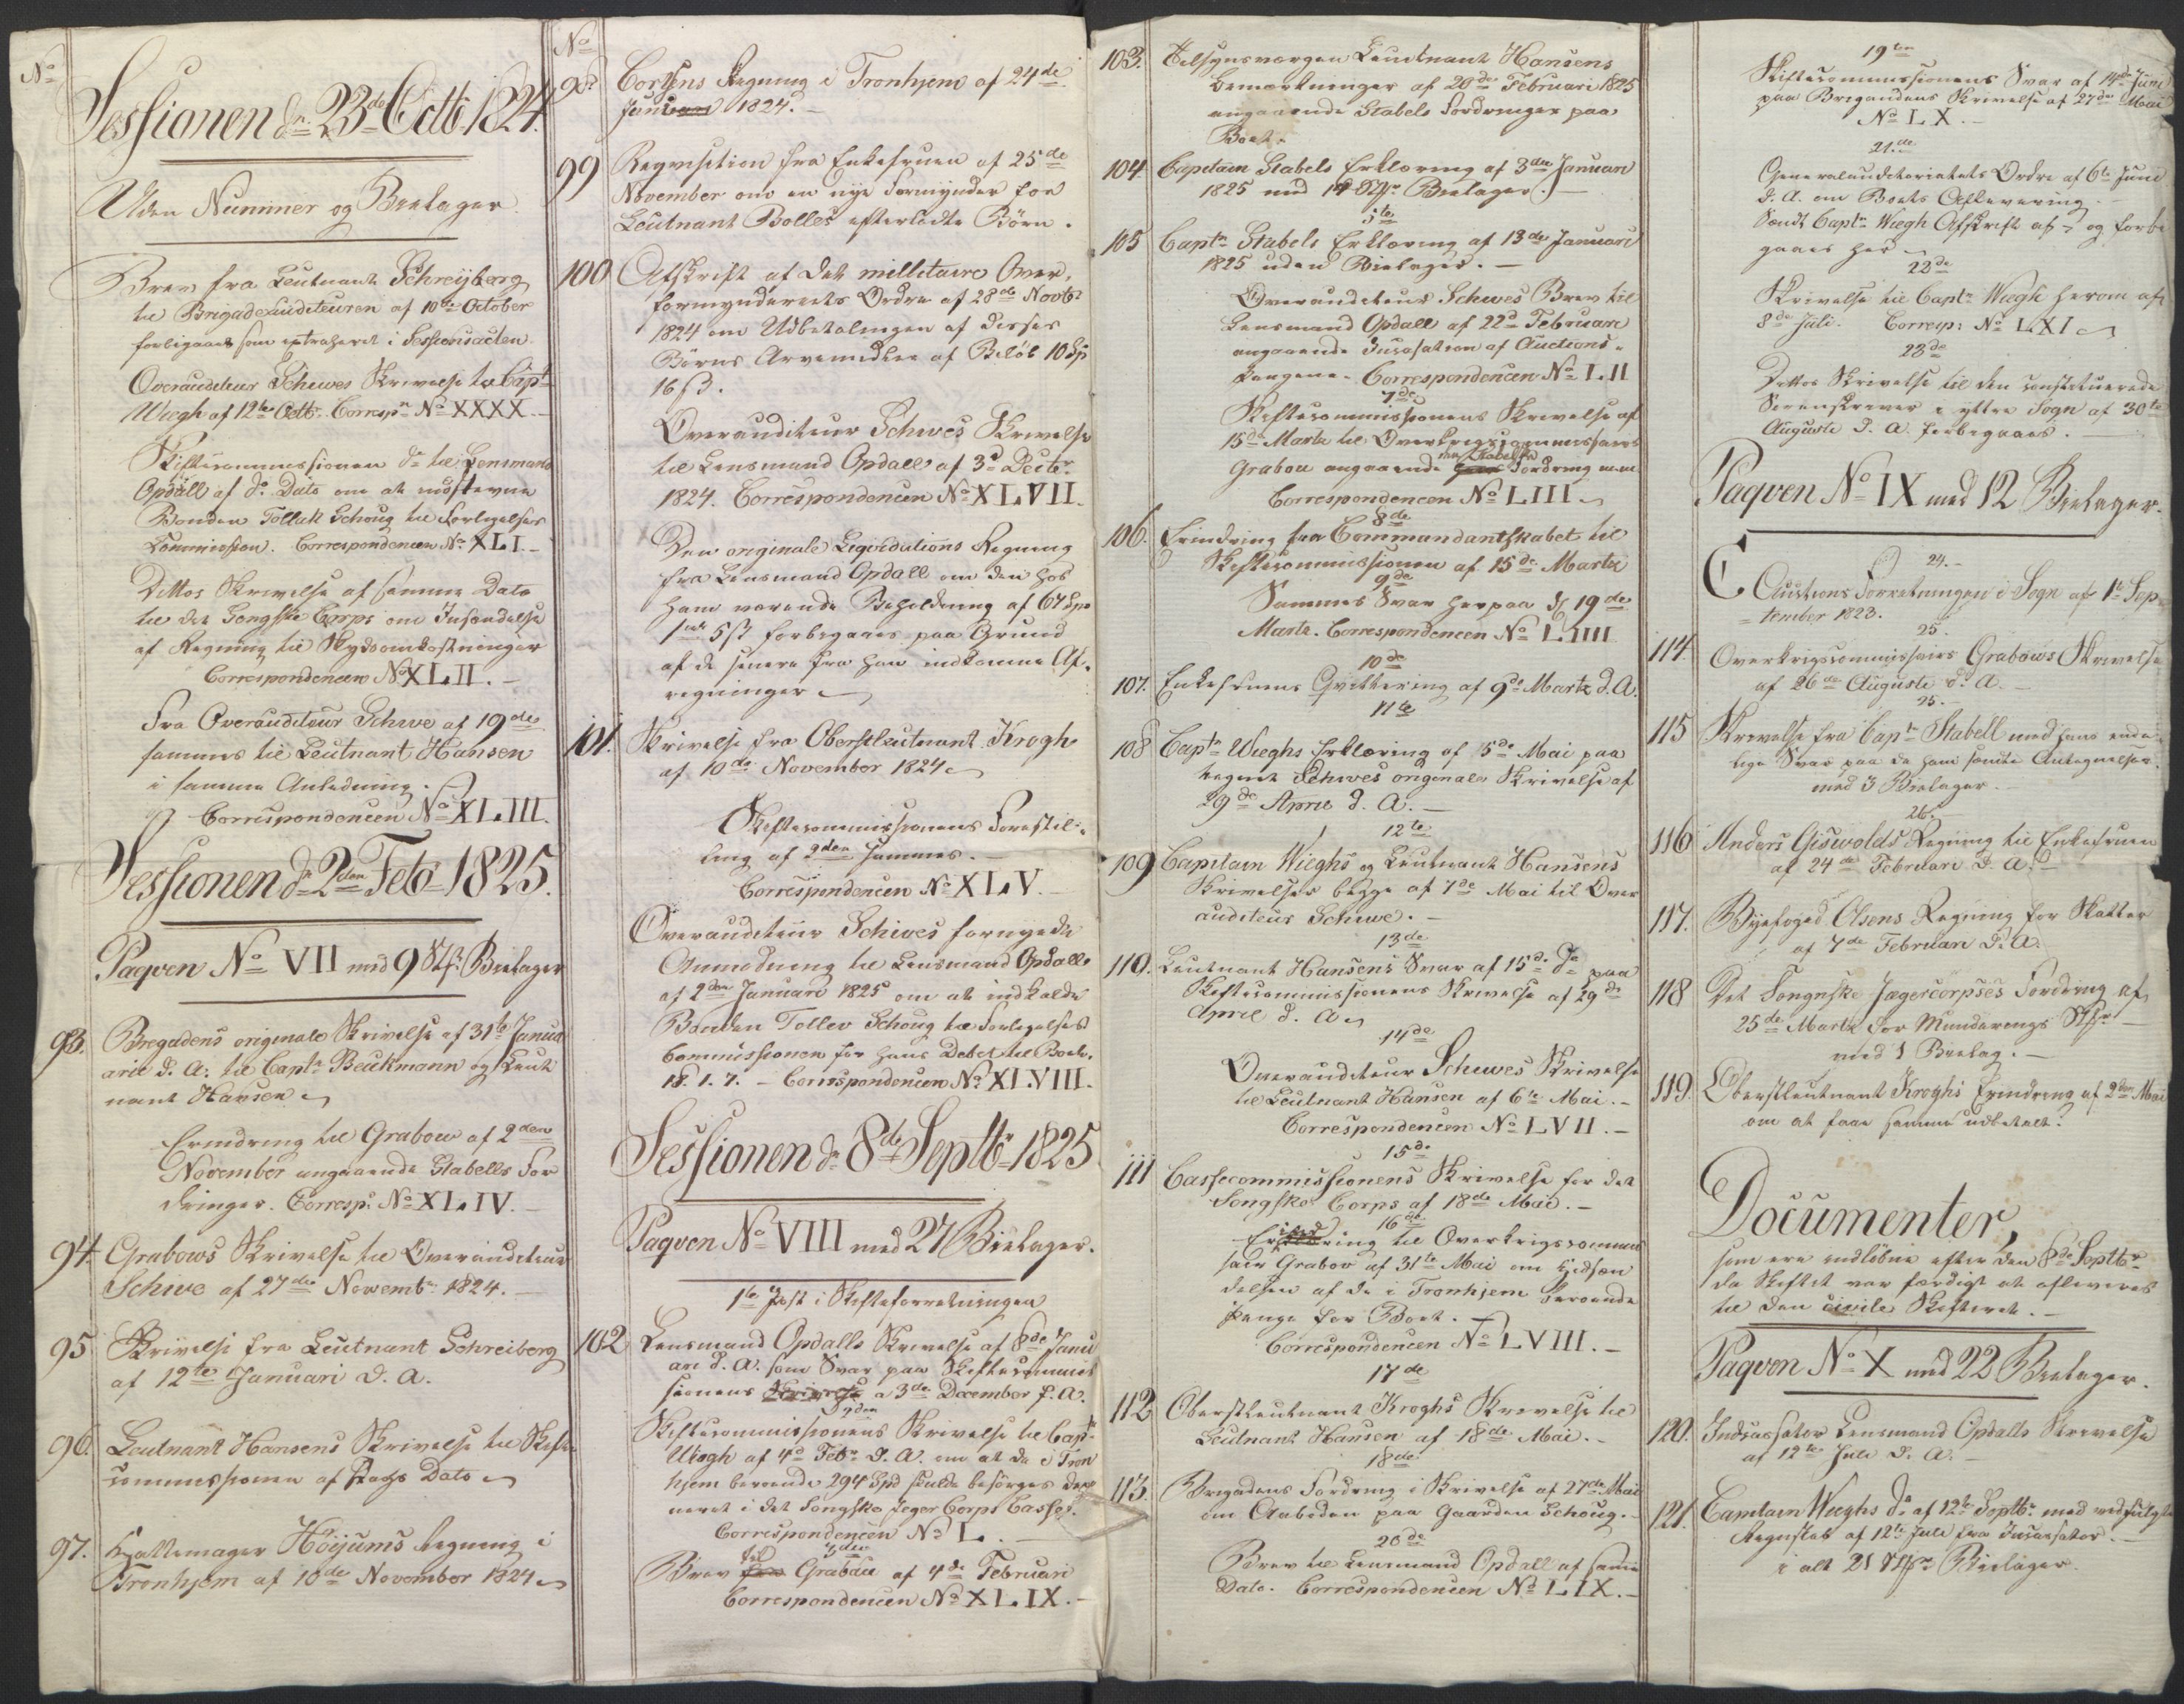 No
Sessionen dn 23de Octb: 1824.
Uden Nummer og Bielager.
Brev fra Leutnant Schreyberg
til Brigadeauditeuren af 10de October
forligaaet som extraheret i Sessionsacten.
Overauditeur Schiwes Skrivelse til Captn
Wiegh af 12te Octb: Corresp: No XXXX.
Skiftecommissionen do til Lensmand
Opdall af do Dato om at indstevne
Bonden Tollak Schoug til Forligelses
Commission. Correspondencen No XLI.
Dittos Skrivelse af samme Dato
til det Songske Corps om Indsendelse
af Regning til Skydsomkostninger
Correspondencen No XLII.
Fra Overauditeur Schiwe af 19de
sammes til Leutnant Hansen
i samme Anledning.
Correspondencen No XLIII.
Sessionen dn 2den Feb: 1825.
Paqven No VII med 9 Stk: Bielager
93. Brigadens originale Skrivelse af 31te Janu
arii d. A. til Captn Beichmann og Leut
nant Hansen
Erindring til Grabow af 2den
November angaaende Stabells For
dringer. Corresp: No XLIV.
94. Grabows Skrivelse til Overauditeur
Schiwe af 27de Novemb: 1824.
95 Skrivelse fra Leutnant Schreiberg
af 12te Januari d. A.
96. Leutnant Hansens Skrivelse til Skifte
commissionen af Dags Dato
97. Hattemager Höijums Regning i
Tronhjem af 10de November 1824
No
98. Regning i Tronhjem af 24de
Januari 1824.
99 Reqvisition fra Enkefruen af 25de
November om en nye Formynder for
Leutnant Bolles efterladte Børn.
100. Afskrift af det millitaire Over
formynderets Ordre af 28de Novbr
1824 om Udbetalingen af disses
Børns Arvemidler af Beløb 10 Sp
16 ß.
Overauditeur Schiwes Skrivelse
til Lensmand Opdall af 3d Decbr
1824. Correspondencen No XLVII.
Den originale Liqvidations Regning
fra Lensmand Opdall om den hos
ham værende Beholdning af 67 Spd
1 ort 5 ß forbigaaes paa Grund
af de senere fra ham indkomne Af
regninger
101. Skrivelse fra Oberstleutnant Krogh
af 10de November 1824
Skiftecommissionens Forestil
ling af 2den sammes.
Correspondencen No XLV.
Overauditeur Schiwes fornyede
Anmodning til Lensmand Opdall
af 2den Januari 1825 om at indkalde
Bonden Tollev Schoug til Forligelses
Commissionen for hans Debet til Boet.
18. 1. 7. - Correspondencen No XLVIII.
Sessionen d: 8de Septbr 1825
Paqven No VIII med 27 Bielager.
1te Post i Skifteforretningen
102 Lensmand Opdalls Skrivelse af 8de Janu
ari d. A. som Svar paa Skiftecommis
sionens Skrivelse a 3de December f. A.
2den
Skiftecommissionens Skrivelse til Captn
Wiegh af 4de Febr d. A. om at de i Tron
hjem beroende 294 Spd skulde besørges depo
neret i det Songske Jeger Corps Casse.
Correspondencen No L.
3die
Brev til Grabau af 4de Februari
Correspondencen No XLIX.
103. Tilsynsværgen Leutnant Hansens
Bemærkninger af 20de Februari 1825
angaaende Stabels Fordringer paa
Boet.
104. Capitain Stabels Erklæring af 3die Januari
1825 med 14 Stkr Bielager.
5te
105 Captn Stabels Erklæring af 13de Januari
1825 uden Bielager.
Overauditeur Schiwes Brev til
Lensmand Opdall af 22d Februari
angaaende Incassation af Auctions
Pengene. Correspondencen No LII
7de
Skiftecommissionens Skrivelse af
15de Marti til Overkrigscommissair
Grabou angaaende Stabells Fordring m.m.
Correspondencen No LIII
8de
106. Erindring fra Commandantskabet til
Skiftecommissionen af 15de Martz
9de
Sammes Svar herpaa d 19de
Marti. Correspondencen No LIIII
10de
107. Enkefruens Qvittering af 9de Martz d. A.
11te
108 Captn Wieghs Erklæring af 15de Mai paa
tegnet Schives originale Skrivelse af
29de April d. A.
12te
109 Capitain Wieghs og Leutnant Hansens
Skrivelser begge af 7de Mai til Over
auditeur Schiwe.
13de
110. Leutnant Hansens Svar af 15de do paa
Skiftecommissionens Skrivelse af 29de
April d. A.
14de
Overauditeur Schiwes Skrivelse
til Leutnant Hansen af 6te Mai.
Correspondencen No LVII.
15de
111 Cassecommissionens Skrivelse for det
Songske Corps af 18de Mai.
16de
Erindring til Overkrigscommis
sair Grabow af 31te Mai om Hidsen
delsen af de i Tronhjem beroende
Penge for Boet.
Correspondencen No LVIII.
17de
112 Oberstleutnant Kroghs Skrivelse til
Leutnant Hansen af 18de Mai.
18de
113. Brigadens Fordring i Skrivelse af 27de Mai
om Aaboden paa Gaarden Schoug.
20de
Brev til Lensmand Opdall af samme
Dato. Correspondencen No LIX.
19ten
Skiftecommissionens Svar af 14de Juni
paa Brigadens Skrivelse af 27de Mai
No LX.
21.de
Generalauditoriatets Ordre af 6te Juni
d. A. om Boets Aflevering.
Sendt Captn Wiegh Afskrift af og forbi
gaaes her
22de
Skrivelse til Captn Wiegh herom af
8de Juli. Corresp: No LXI
23de
Dittos Skrivelse til den constituerede
Sorenskriver i yttre Sogn af 30te
Augusti d. A. forbigaaes.
Paqven No IX med 12 Bielager.
24.
Auctions Forretningen i Sogn af 1te Sep
tember 1823.
25.
114. Overkrigscommissairs Grabows Skrivelse
af 26de Augusti d. A.
25.
115 Skrivelse fra Captn Stabell med hans ende
lige Svar paa de ham sendte Antegnelser.
med 3 Bielager.
26.
116 Anders Giswolds Regning til Enkefruen
af 24de Februari d. A.
117. Byefoged Olsens Regning for Skatter
af 7de Februari d. A.
118 Det Songnske Jægercorpses Fordring af
25de Martz for Munderings Stkr
med 1 Bielag.
119. Oberstleutnant Kroghs Erindring af 2den Mai
om at faae samme udbetalt.
Documenter,
som ere indløbne efter den 8de Septbr
da Skiftet var færdigt at afleveres
til den civile Skifteret.
Paqven No X med 22 Bielager.
120. Incassator Lensmand Opdalls Skrivelse
af 12te Juli d. A.
121. Capitain Wieghs do af 12te Septbr med vedfulgte
Regnskab af 12te Juli fra Incassator.
i alt 21 Stkr Bielager.